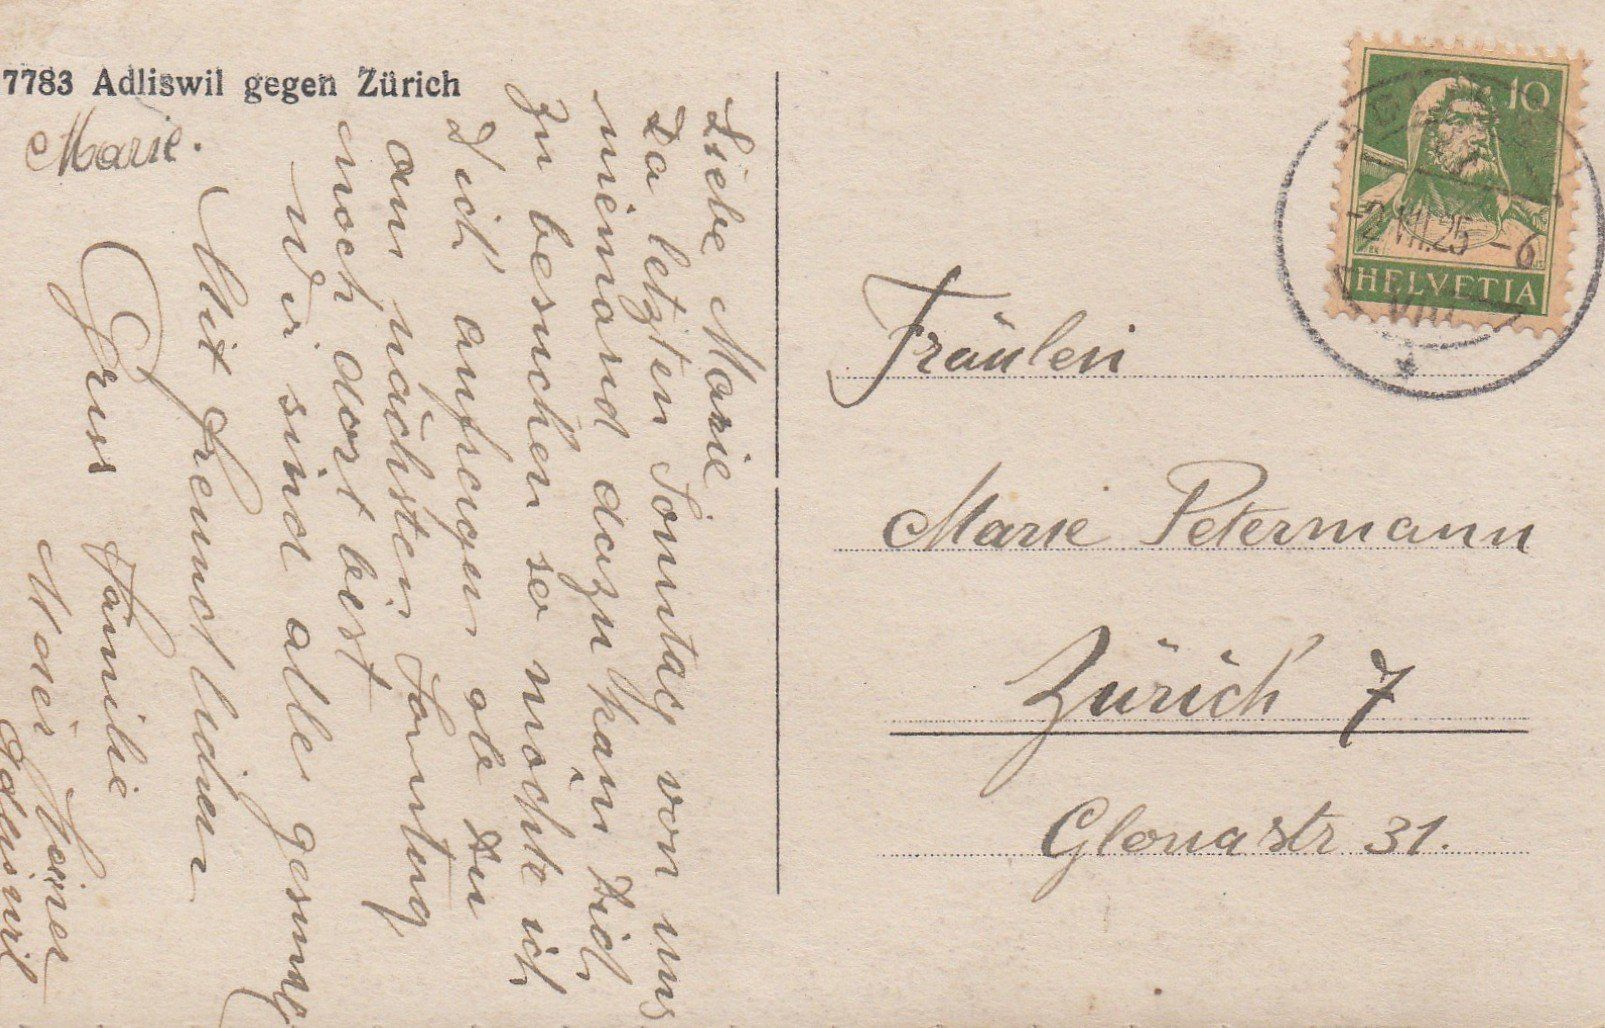 7783 Adliswil gegen Zürich
Marie.
Liebe Marie
Da letzten Sonntag von uns
niemand dazu kam Dich
zu besuchen so möchte ich
Dich anfragen ob Du
am nächsten Sonntag
noch dort bist
Wir sind alle gesund
Mit freundlichen
Gruss Familie
Adliswil
10
-2.VIII.25 - 6
HELVETIA
Fräulein
Marie Petermann
Zürich 7
31.